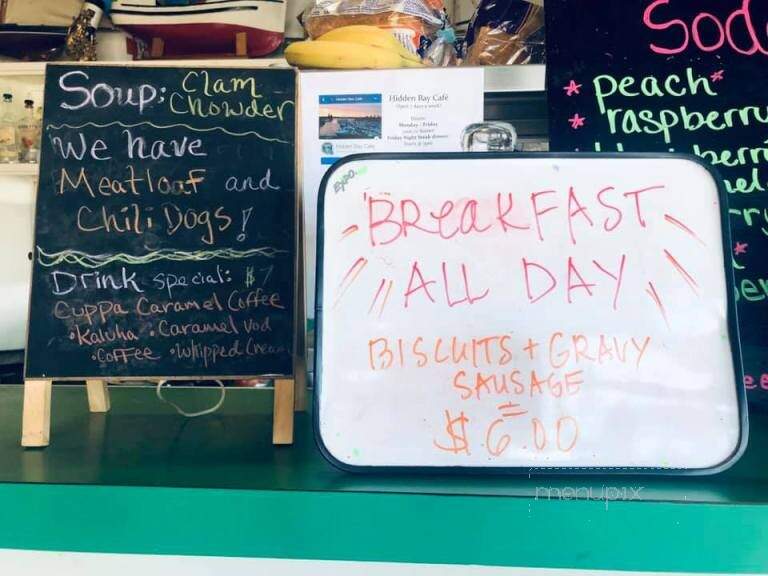 Soup: Clam
Chowder
We have
Meatloaf and
Chili Dogs!
Drink special: $7
Cuppa Caramel Coffee
•Kaluha •Caramel Vod
•Coffee •Whipped Cream
Hidden Bay Café
Open 7 days a week!
Hours:
Monday - Friday
Friday Night Steak dinner
Hidden Bay Cafe
EXPO
BREAKFAST
ALL DAY
BISCUITS + GRAVY
SAUSAGE
$6.00
Sod
* peach *
* raspberry
menupix